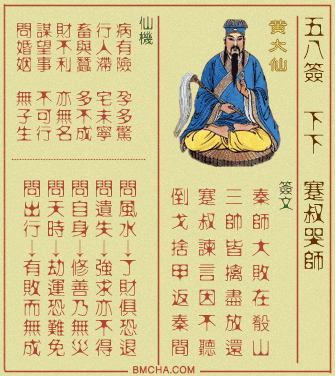 五八簽 下下 蹇叔哭師
黄大仙
簽文
秦師大敗在殽山
三帥皆擒盡放還
蹇叔諫言因不聽
倒戈捨甲返秦間
仙機
病有險 孕多驚
行人滯 宅未寧
畜與蠶 多不成
財不利 亦無名
謀望事 不可行
問婚姻 無子生
問風水→了財俱恐退
問遺失→強求亦不得
問自身→修善乃無災
問天時→劫運恐難免
問出行→有敗而無成
BMCHA.COM